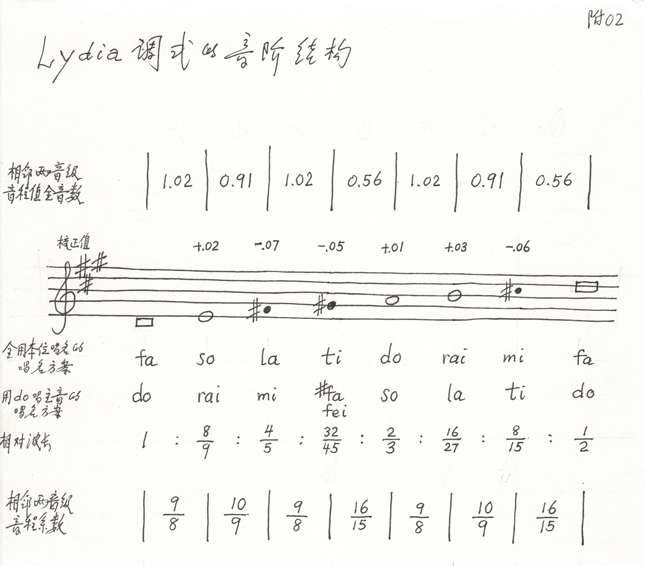 附02
Lydia 调式的音阶结构
相邻两音级
音程值全音数
| 1.02 | 0.91 | 1.02 | 0.56 | 1.02 | 0.91 | 0.56 |
校正值 +.02 -.07 -.05 +.01 +.03 -.06
全用本位唱名的
唱名方案
fa so la ti do rai mi fa
用do唱主音的
唱名方案
do rai mi #fa so la ti do
fei
相对波长 1 : 8/9 : 4/5 : 32/45 : 2/3 : 16/27 : 8/15 : 1/2
相邻两音级
音程系数
| 9/8 | 10/9 | 9/8 | 16/15 | 9/8 | 10/9 | 16/15 |